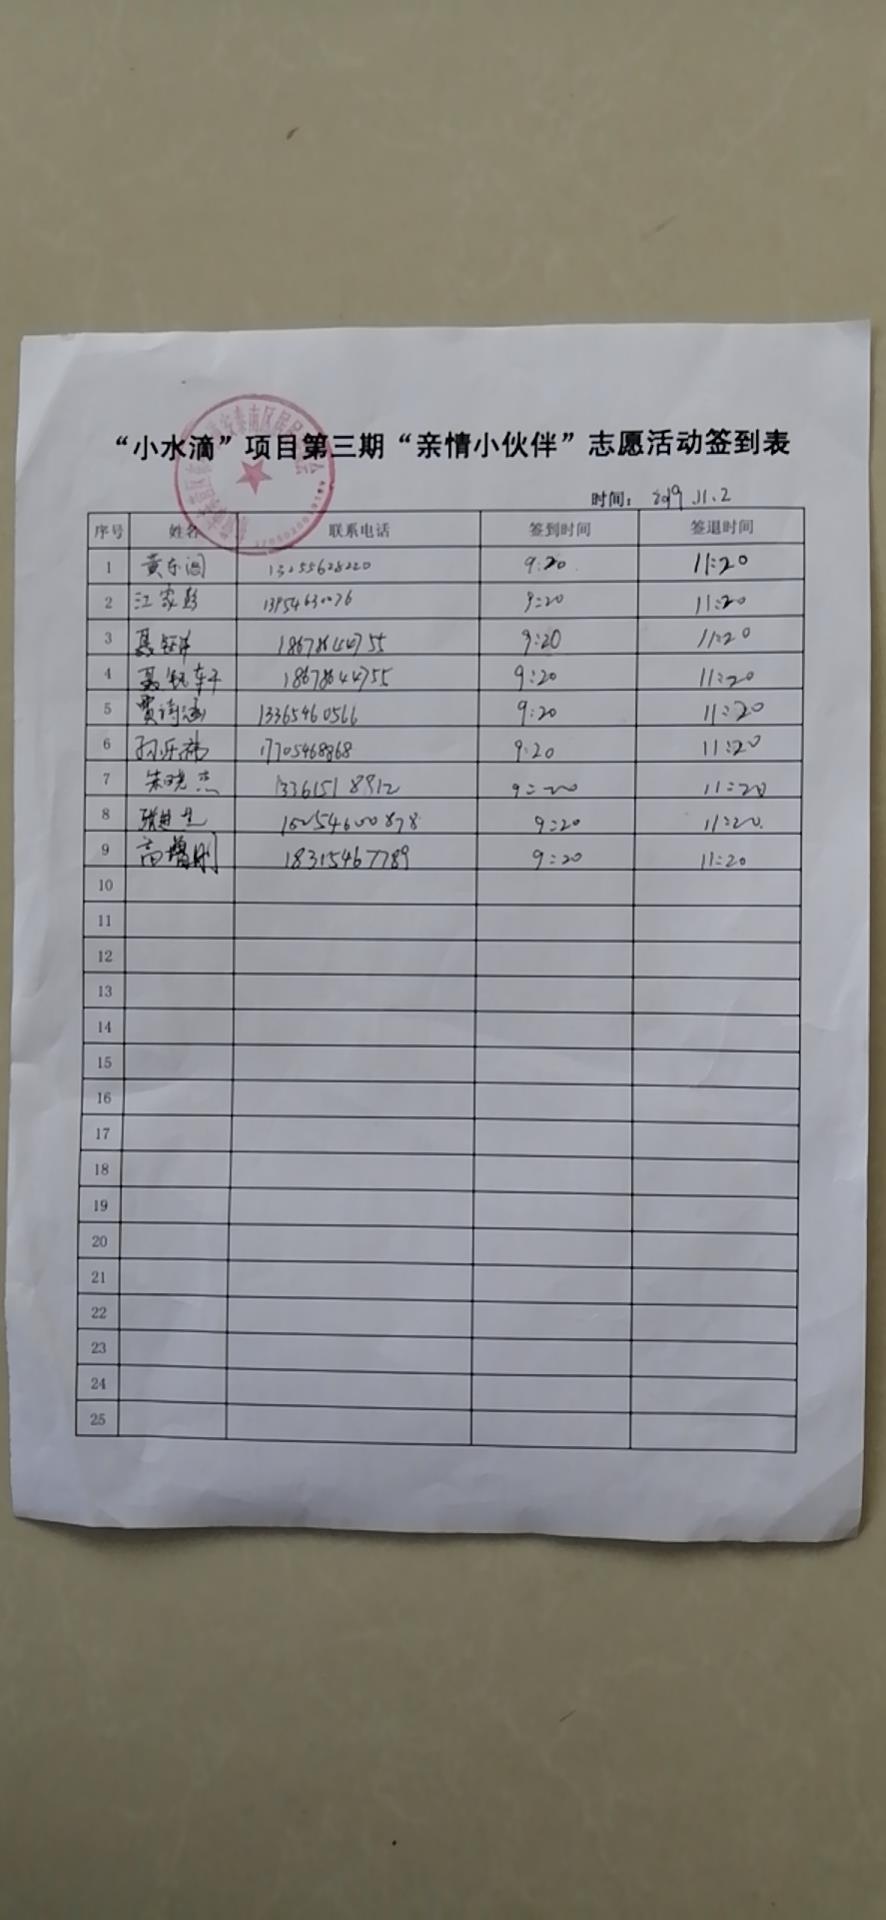 “小水滴”项目第三期“亲情小伙伴”志愿活动签到表
时间： 2019.11.2
序号 姓名 联系电话 签到时间 签退时间
1 黄东 9:20 11:20
2 江家彭 13954630076 9:20 11:20
3 聂 18678644755 9:20 11:20
4 聂钰轩 18678644755 9:20 11:20
5 贾诗涵 13365460566 9:20 11:20
6 孙乐 17705468868 9:20 11:20
7 朱晓杰 13361518912 9:20 11:20
8 张进 15254600878 9:20 11:20
9 高增刚 18315467789 9:20 11:20
10
11
12
13
14
15
16
17
18
19
20
21
22
23
24
25